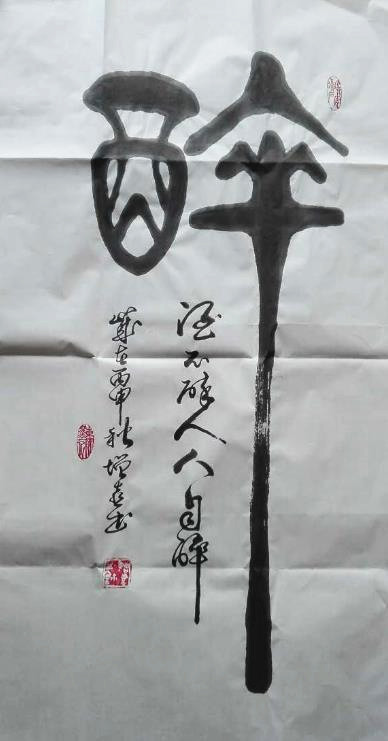 醉
酒不醉人人自醉
岁在丙申秋增喜书